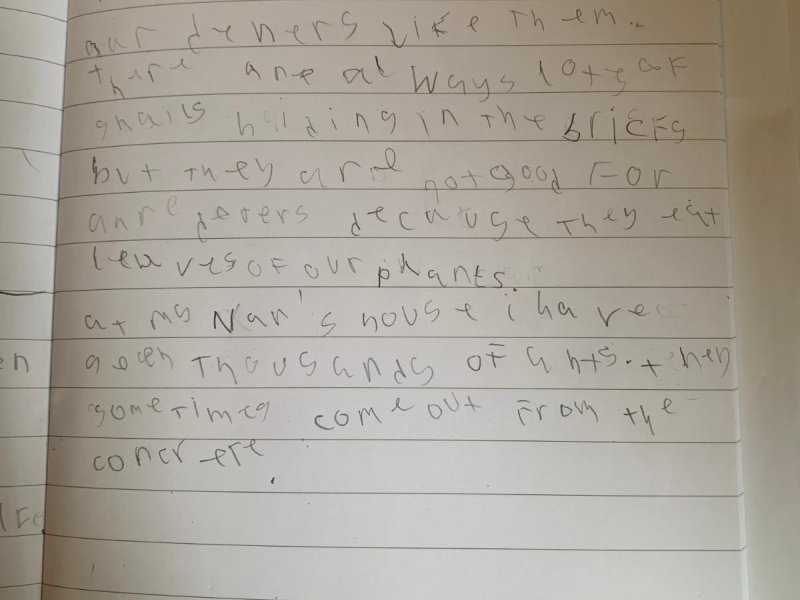 gardeners like them.
there are always lots of
snails hiding in the bricks
but they are not good for
anredeners because they eat
leaves of our plants.
at my Nan's house i have
seen thousands of ants. they
sometimes come out from the
concrete.
en